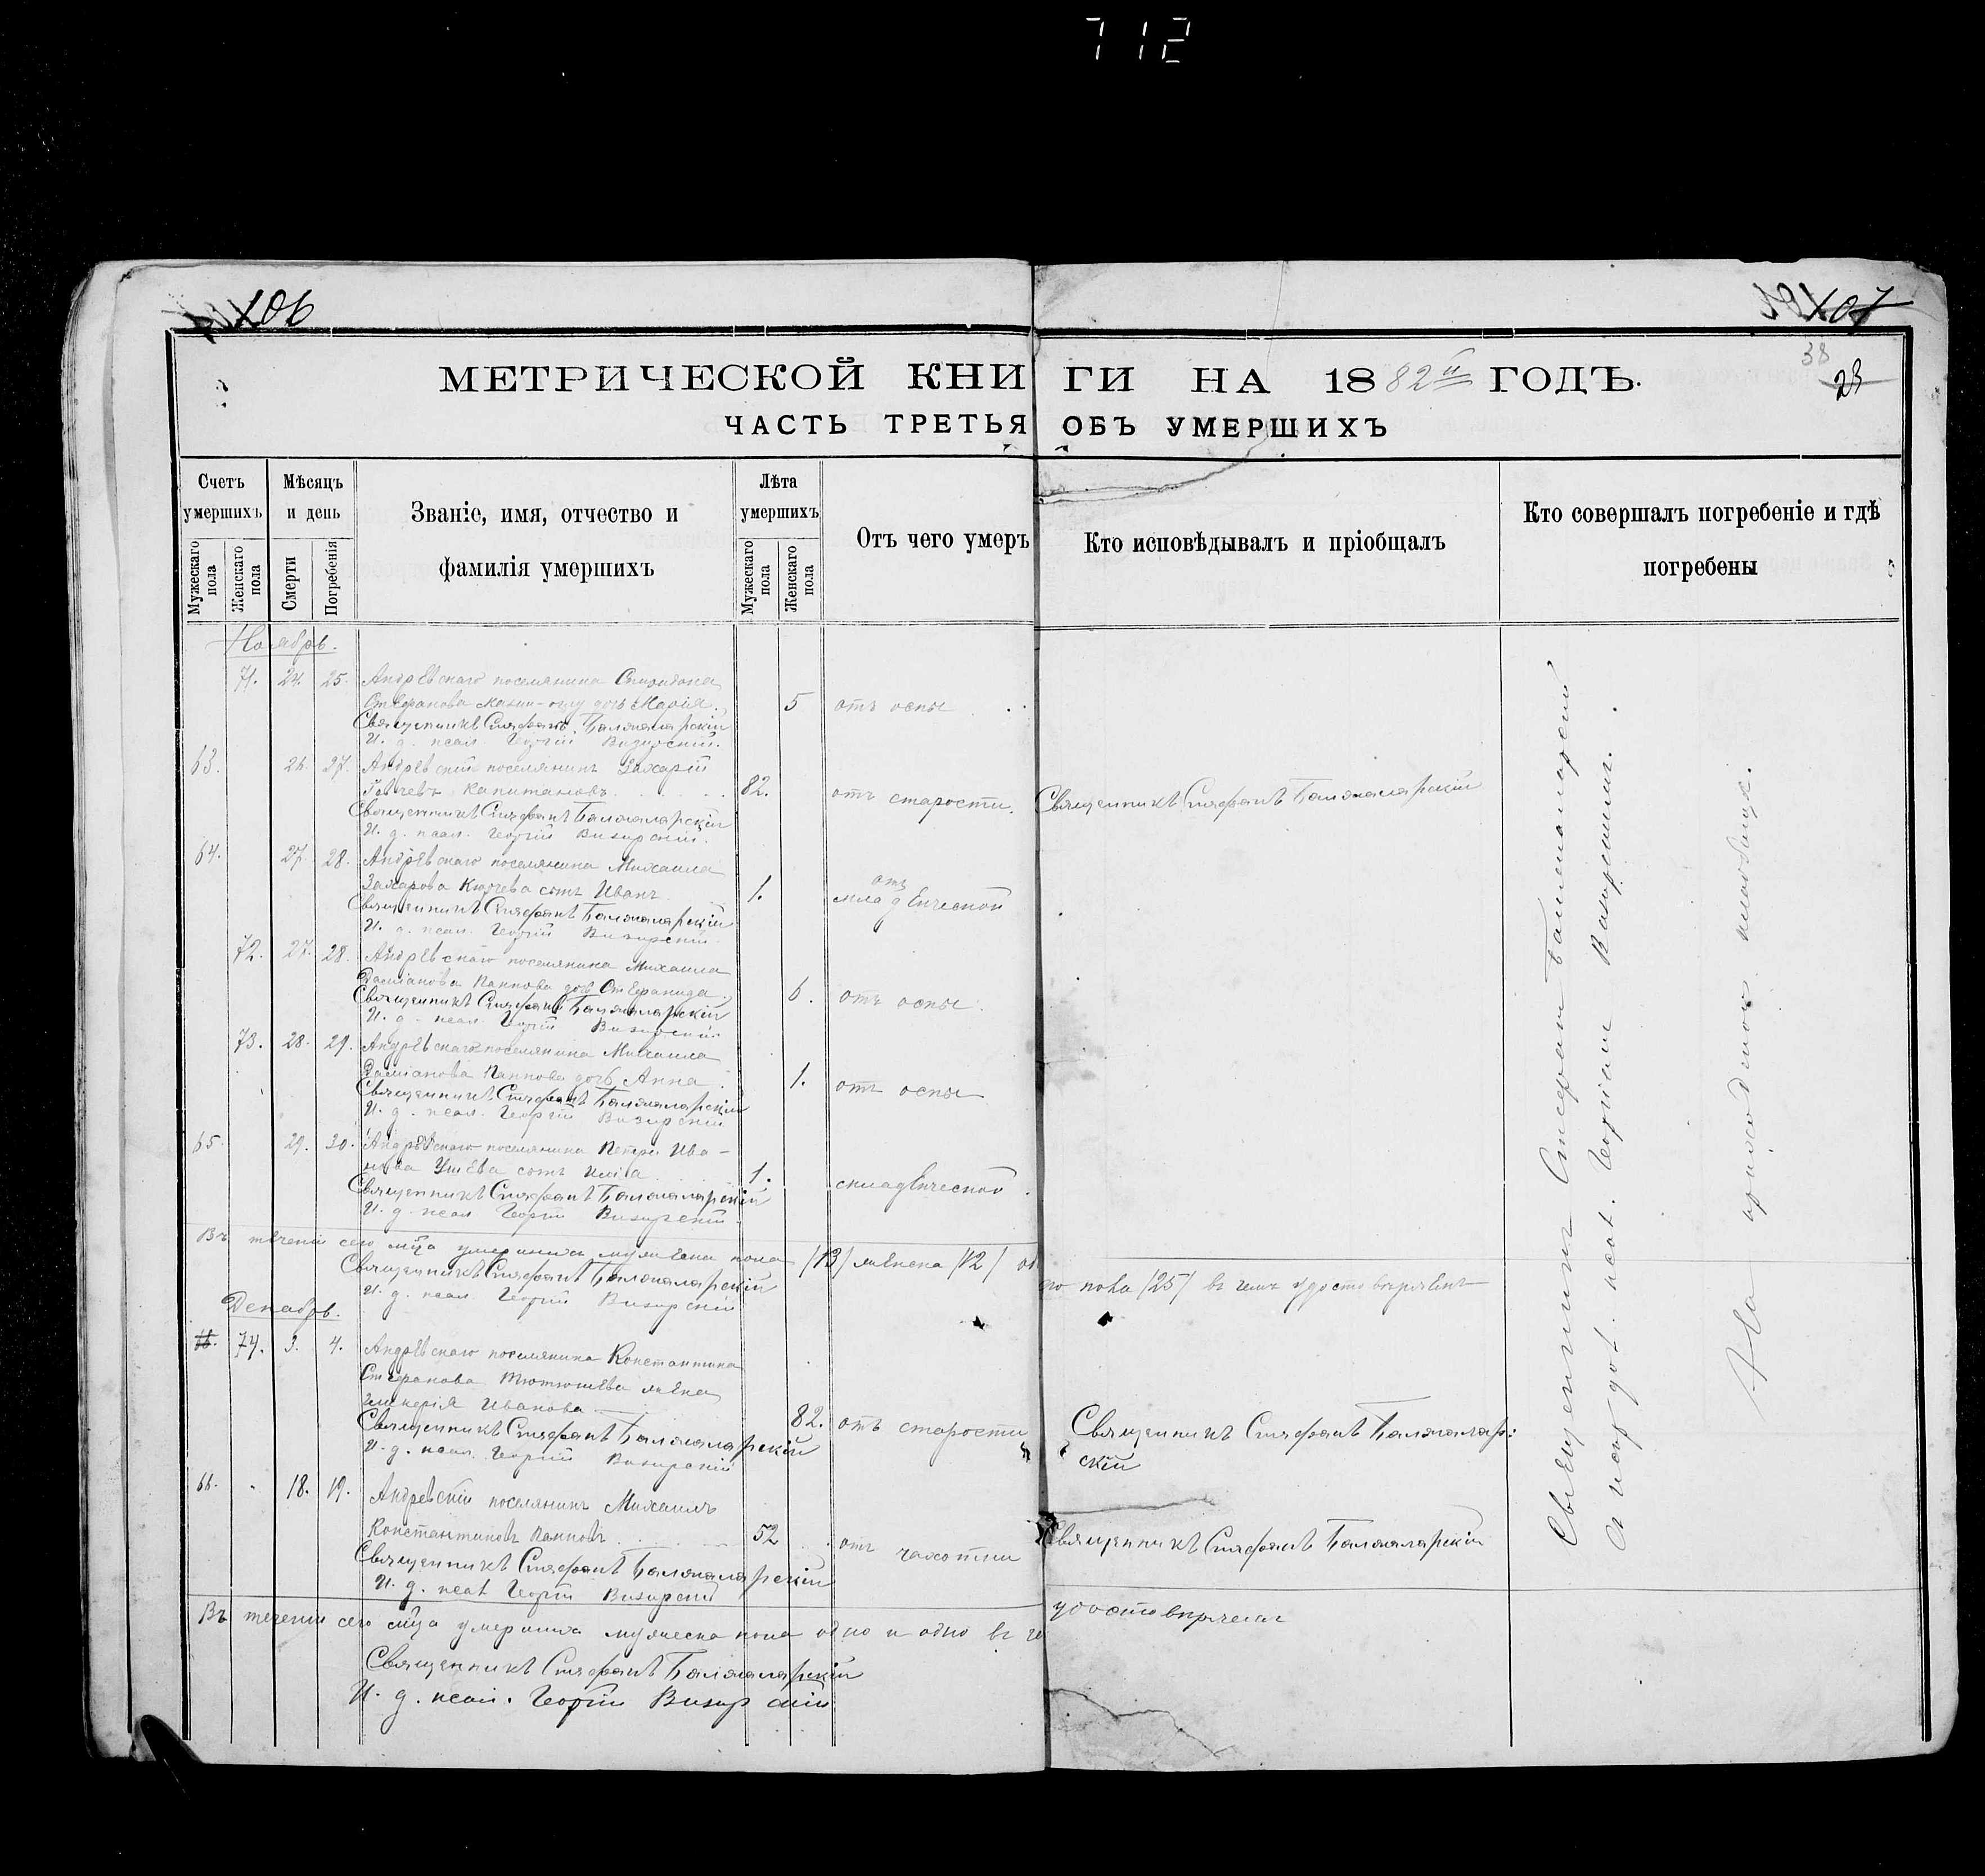 712
106
107
МЕТРИЧЕСКОЙ КНИГИ НА 1882й ГОДЪ.
38
ЧАСТЬ ТРЕТЬЯ ОБЪ УМЕРШИХЪ
Счетъ умершихъ
Мужескаго пола
Женскаго пола
Мѣсяцъ и день
Смерти
Погребенія
Званіе, имя, отчество и фамилія умершихъ
Лѣта умершихъ
Мужескаго пола
Женскаго пола
Отъ чего умеръ
Кто исповѣдывалъ и пріобщалъ
Кто совершалъ погребеніе и гдѣ погребены
Ноябрь.
71. 24. 25. Андрѣевскаго поселянина Спиридона
Стефанова дочь Марія. 5 отъ оспы
Священникъ Стефанъ Балжаларскій
И. д. псал. Георгій Визирскій.
63. 26. 27. Андрѣевскій поселянинъ Захарій
Капитановъ 82. отъ старости. Священникъ Стефанъ Балжаларскій
Священникъ Стефанъ Балжаларскій
И. д. псал. Георгій Визирскій.
64. 27. 28. Андрѣевскаго поселянина Михаила
Захарова Кюрчева сынъ Иванъ 1. отъ младенческой
Священникъ Стефанъ Балжаларскій
И. д. псал. Георгій Визирскій.
72. 27. 28. Андрѣевскаго поселянина Михаила
Даміанова Паппова дочь Стефанида. 6. отъ оспы
Священникъ Стефанъ Балжаларскій
И. д. псал. Георгій Визирскій
73. 28. 29. Андрѣевскаго поселянина Михаила
Даміанова Паппова дочь Анна. 1. отъ оспы
Священникъ Стефанъ Балжаларскій
И. д. псал. Георгій Визирскій
65. 29. 30. Андрѣевскаго поселянина Петра Ива-
нова сынъ Илія 1. младенческой.
Священникъ Стефанъ Балжаларскій
И. д. псал. Георгій Визирскій.
Въ теченіи сего мѣсяца умершихъ мужеска пола /13/ женска /12/ обо
го пола /25/ въ чемъ удостовѣряемъ
Священникъ Стефанъ Балжаларскій
И. д. псал. Георгій Визирскій
Декабрь.
74. 3. 4. Андрѣевскаго поселянина Константина
Стефанова Тютюнжева жена
Гликерія Иванова 82. отъ старости Священникъ Стефанъ Балжалар:
скій
Священникъ Стефанъ Балжаларскій
И. д. псал. Георгій Визирскій
66. 18. 19. Андрѣевскій поселянинъ Михаилъ
Константиновъ Папповъ 52 отъ чахотки Священникъ Стефанъ Балжаларскій
Священникъ Стефанъ Балжаларскій
И. д. псал. Георгій Визирскій
Въ теченіи сего мѣсяца умершихъ мужеска пола одно и одно въ че
удостовѣряемъ
Священникъ Стефанъ Балжаларскій
И. д. псал. Георгій Визирскій
Священникъ Стефанъ Балжаларскій
съ испр. дол. псал. Георгіемъ Визирскимъ.
На приходскомъ кладбищѣ.